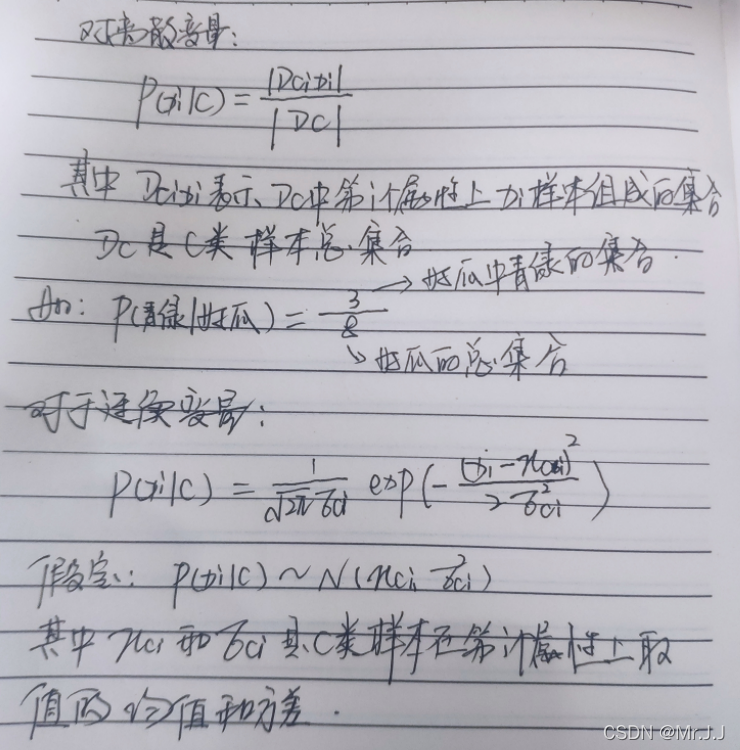 对离散变量：
P(xi|C) = |Dci xi| / |DC|
其中 Dci xi 表示 Dc中第i个属性上xi样本组成的集合
Dc 是 C类 样本总集合
如：P(青绿|好瓜) = 3/8 → 好瓜中青绿的集合.
↘ 好瓜的总集合
对于连续变量：
P(xi|C) = 1/(√2π σci) exp(-(xi-μci)²/2σ²ci)
假定：P(xi|C) ~ N(μci σ²ci)
其中 μci 和 σci 是C类样本在第i个属性上取
值的均值和方差.
CSDN @Mr.J.J